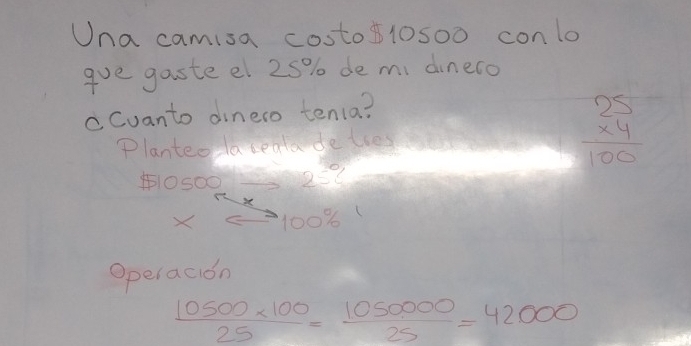 Una camisa costo $10500 con lo
que gaste el 25% de mi dinero
¿Cuanto dinero tenia?
25
×4
100
Planteo la regla de tres
$10500 → 25%
x ← 100%
Operación
10500 × 100 / 25 = 1050000 / 25 = 42000